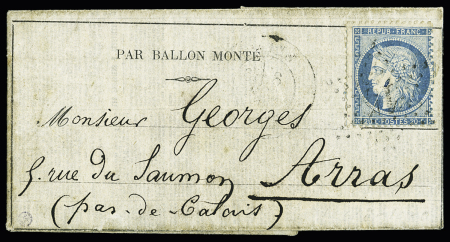 REPUB. FRANC.
PAR BALLON MONTÉ
20 C. POSTES 20 C.
Monsieur Georges
5. rue du Saumon
Arras
(pas-de-Calais)